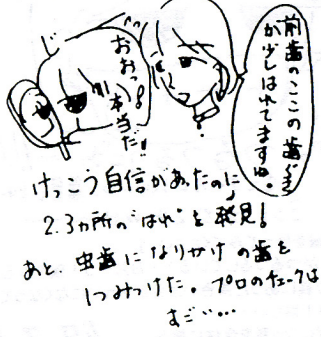 前歯のここの歯ぐき
が少しはれてますね。
じー
おおっ!
本当だ!
けっこう自信があったのに
2.3カ所の"はれ"を発見!
あと、虫歯になりかけの歯を
1つみつけた。プロのチェックは
すごい…